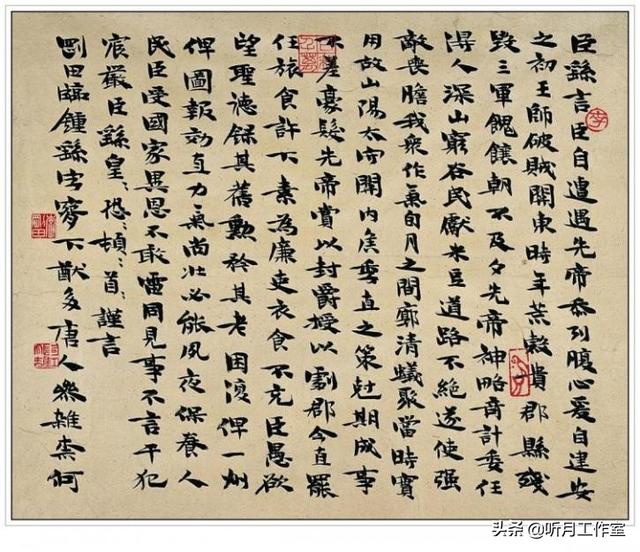 臣繇言臣自遭遇先帝忝列腹心爰自建安
之初王師破賊關東時年荒穀貴郡縣殘
毀三軍餽饟朝不及夕先帝神略奇計委任
得人深山窮谷民獻米豆道路不絕遂使强
敵喪膽我衆作氣旬月之間廓清蟻聚當時實
用故山陽太守關內侯季直之策尅期成事
不差豪髮先帝賞以封爵授以劇郡今直罷
任旅食許下素為廉吏衣食不充臣愚欲
望聖德錄其舊勳矜其老困復俾一州
俾圖報効直力氣尚壯必能夙夜保養人
民臣受國家異恩不敢雷同見事不言干犯
宸嚴臣繇皇:恐:頓:首:謹言
劉田臨鍾繇法 下猷多唐人 雜 何
头条 @听月工作室